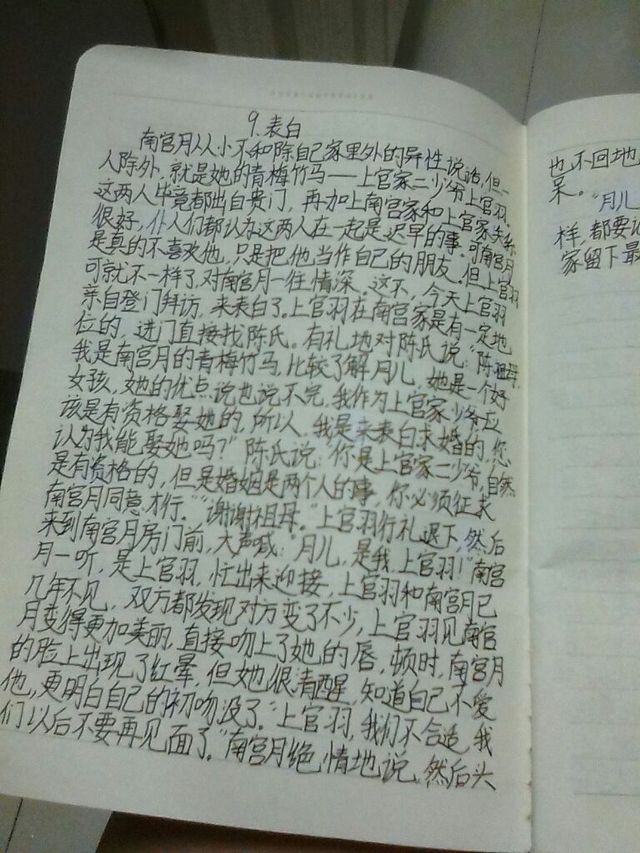 9.表白
南宫月从小不和除自己家里外的异性说话,但一
人除外,就是她的青梅竹马——上官家二少爷上官羽。
这两人毕竟都出自贵门,再加上南宫家和上官家关系
很好,仆人们都认为这两人在一起是迟早的事。可南宫月
是真的不喜欢他,只是把他当作自己的朋友。但上官羽
可就不一样了,对南宫月一往情深。这不,今天上官羽
亲自登门拜访,来表白了。上官羽在南宫家是有一定地
位的,进门直接找陈氏。有礼地对陈氏说:“陈祖母,
我是南宫月的青梅竹马,比较了解月儿,她是一个好
女孩,她的优点说也说不完,我作为上官家少爷应
该是有资格娶她的,所以,我是来表白求婚的,您
认为我能娶她吗?”陈氏说:“你是上官家二少爷,自然
是有资格的,但是婚姻是两个人的事,你必须征求
南宫月同意才行。”“谢谢祖母。”上官羽行礼退下,然后
来到南宫月房门前,大声喊:“月儿,是我,上官羽!”南宫
月一听,是上官羽,忙出来迎接,上官羽和南宫月已
几年不见,双方都发现对方变了不少,上官羽见南宫
月变得更加美丽,直接吻上了她的唇,顿时,南宫月
的脸上出现了红晕,但她很清醒,知道自己不爱
他,更明白自己的初吻没了。“上官羽,我们不合适,我
们以后不要再见面了。”南宫月绝情地说,然后头
也不回地
呆。“月儿
样,都要
家留下最